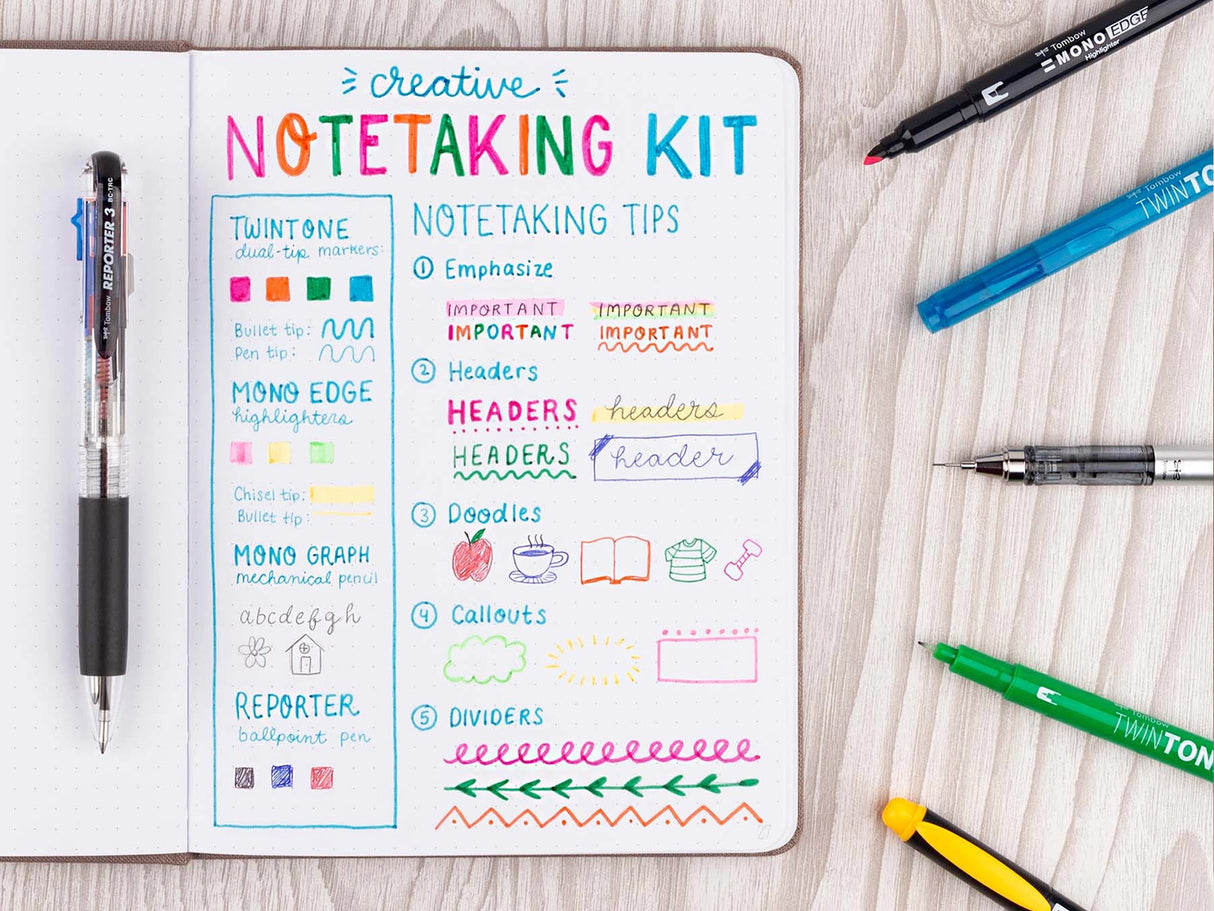 creative
NOTETAKING KIT
TWINTONE
dual-tip markers:
Bullet tip:
Pen tip:
MONO EDGE
highlighters
Chisel tip:
Bullet tip:
MONO GRAPH
mechanical pencil
abcdefgh
REPORTER
ballpoint pen
NOTETAKING TIPS
1 Emphasize
IMPORTANT IMPORTANT
IMPORTANT IMPORTANT
2 Headers
HEADERS headers
HEADERS header
3 Doodles
4 Callouts
5 DIVIDERS
27
Tombow REPORTER 3 BC-TRC
Tombow
MONO EDGE
Highlighter
Tombow
TWINTO
Tombow
TWINTON